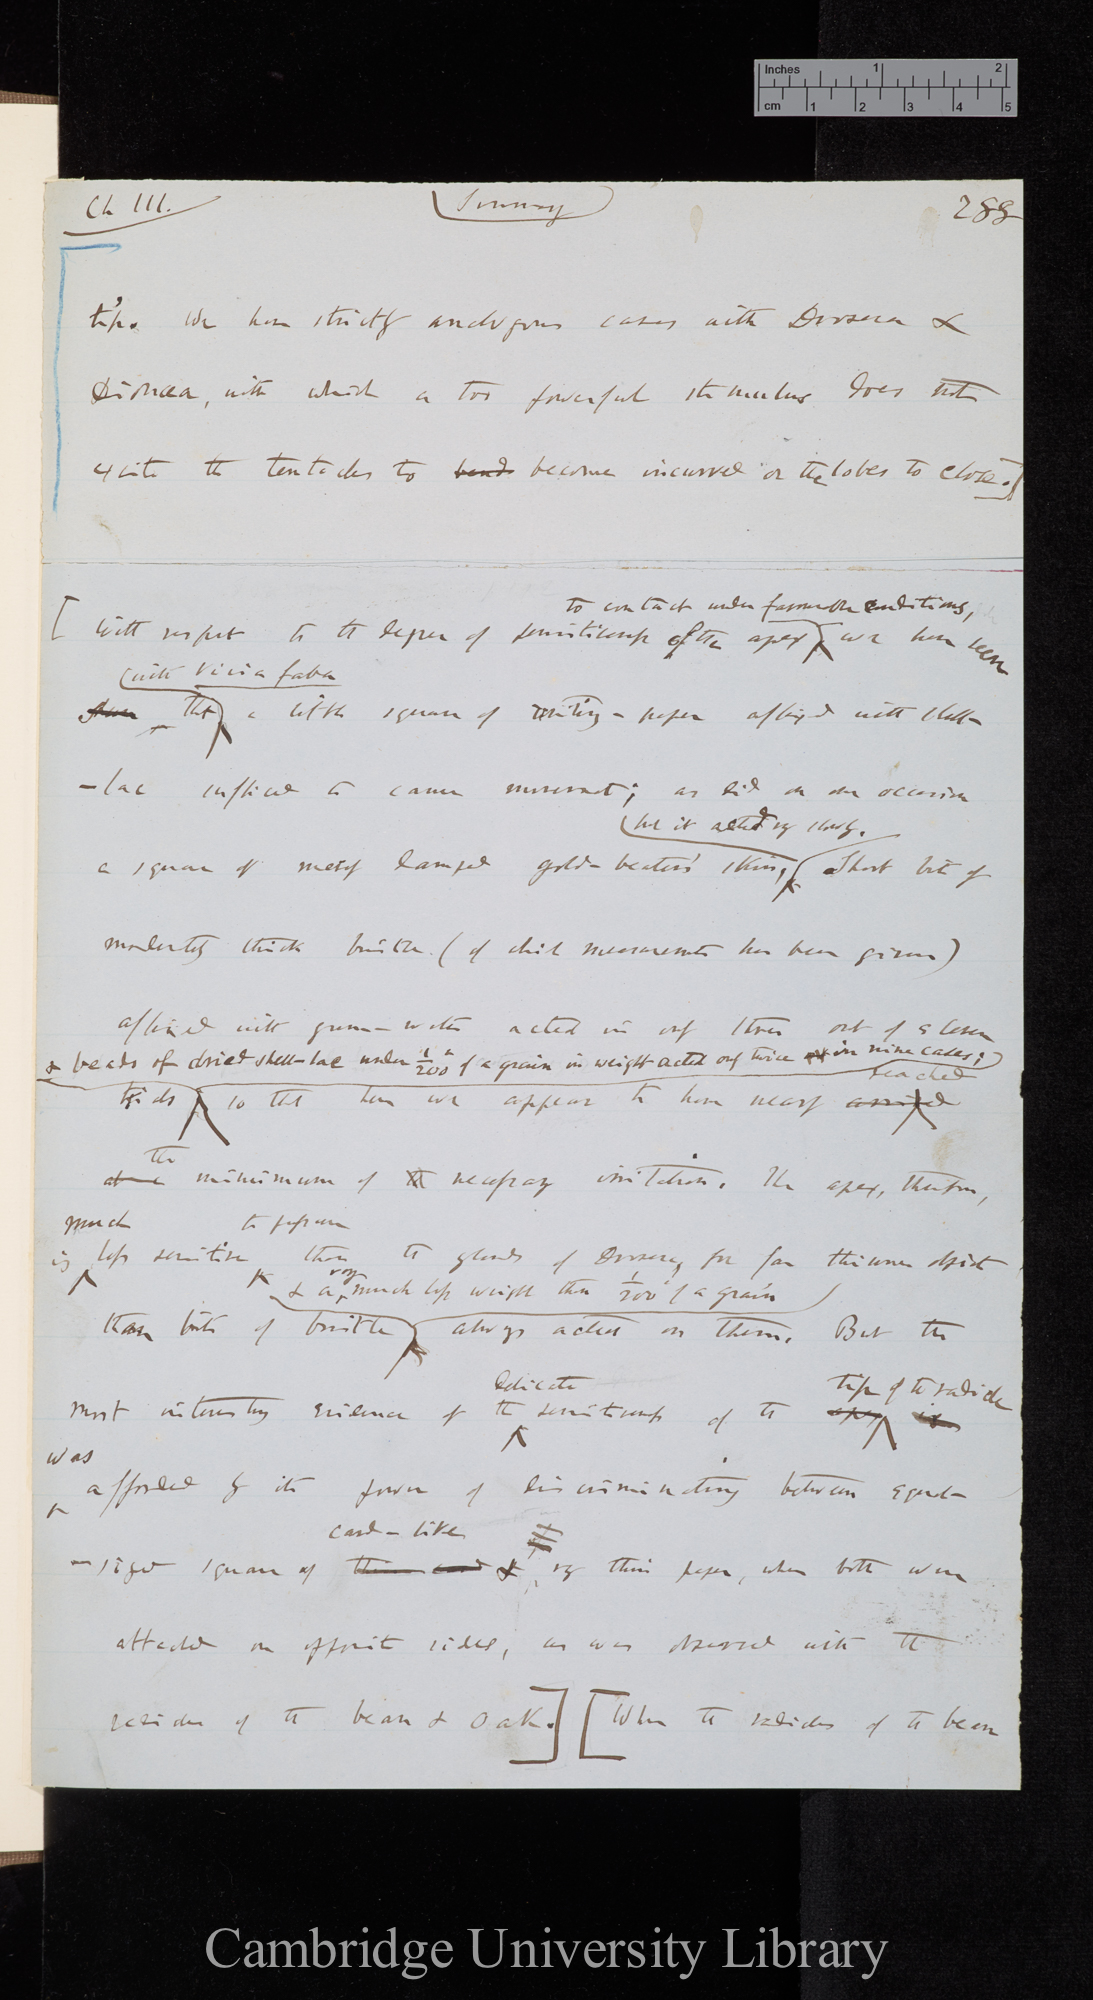 Inches 1 2
cm 1 2 3 4 5
Ch III.
Summary
288
tips. We have strictly analogous cases with Drosera &
Dionaea, with which a too powerful stimulus does not
excite the tentacles to bend become incurved or the lobes to close.]
to contact under favourable conditions,
[ With respect to the degree of sensitiveness of the apex we have seen
(with Vicia faba
shown that a little square of writing-paper affixed with shell-
-lac sufficed to cause movement; as did on one occasion
but it acted very slowly.
a square of merely damped gold-beaters' skin, Short bits of
moderately thick bristle (of which measurements have been given)
affixed with gum-water acted in only three out of eleven
& beads of dried shell-lac under 1/200th of a grain in weight acted only twice in nine cases;
reached
trials so that here we appear to have nearly arrived
the
at the minimum of the necessary irritation. The apex, therefore,
much to pressure
is less sensitive than the glands of Drosera, for far thinner objects
& a very much less weight than 1/200 of a grain
than bits of bristle always acted on them. But the
delicate tip of the radicle
most interesting evidence of the sensitiveness of the apex is
was
afforded by its power of discriminating between equal-
card-like
-sized squares of thin card & very thin paper, when both were
attached on opposite sides, as was observed with the
radicles of the bean & oak.] [When the radicles of the bean
Cambridge University Library